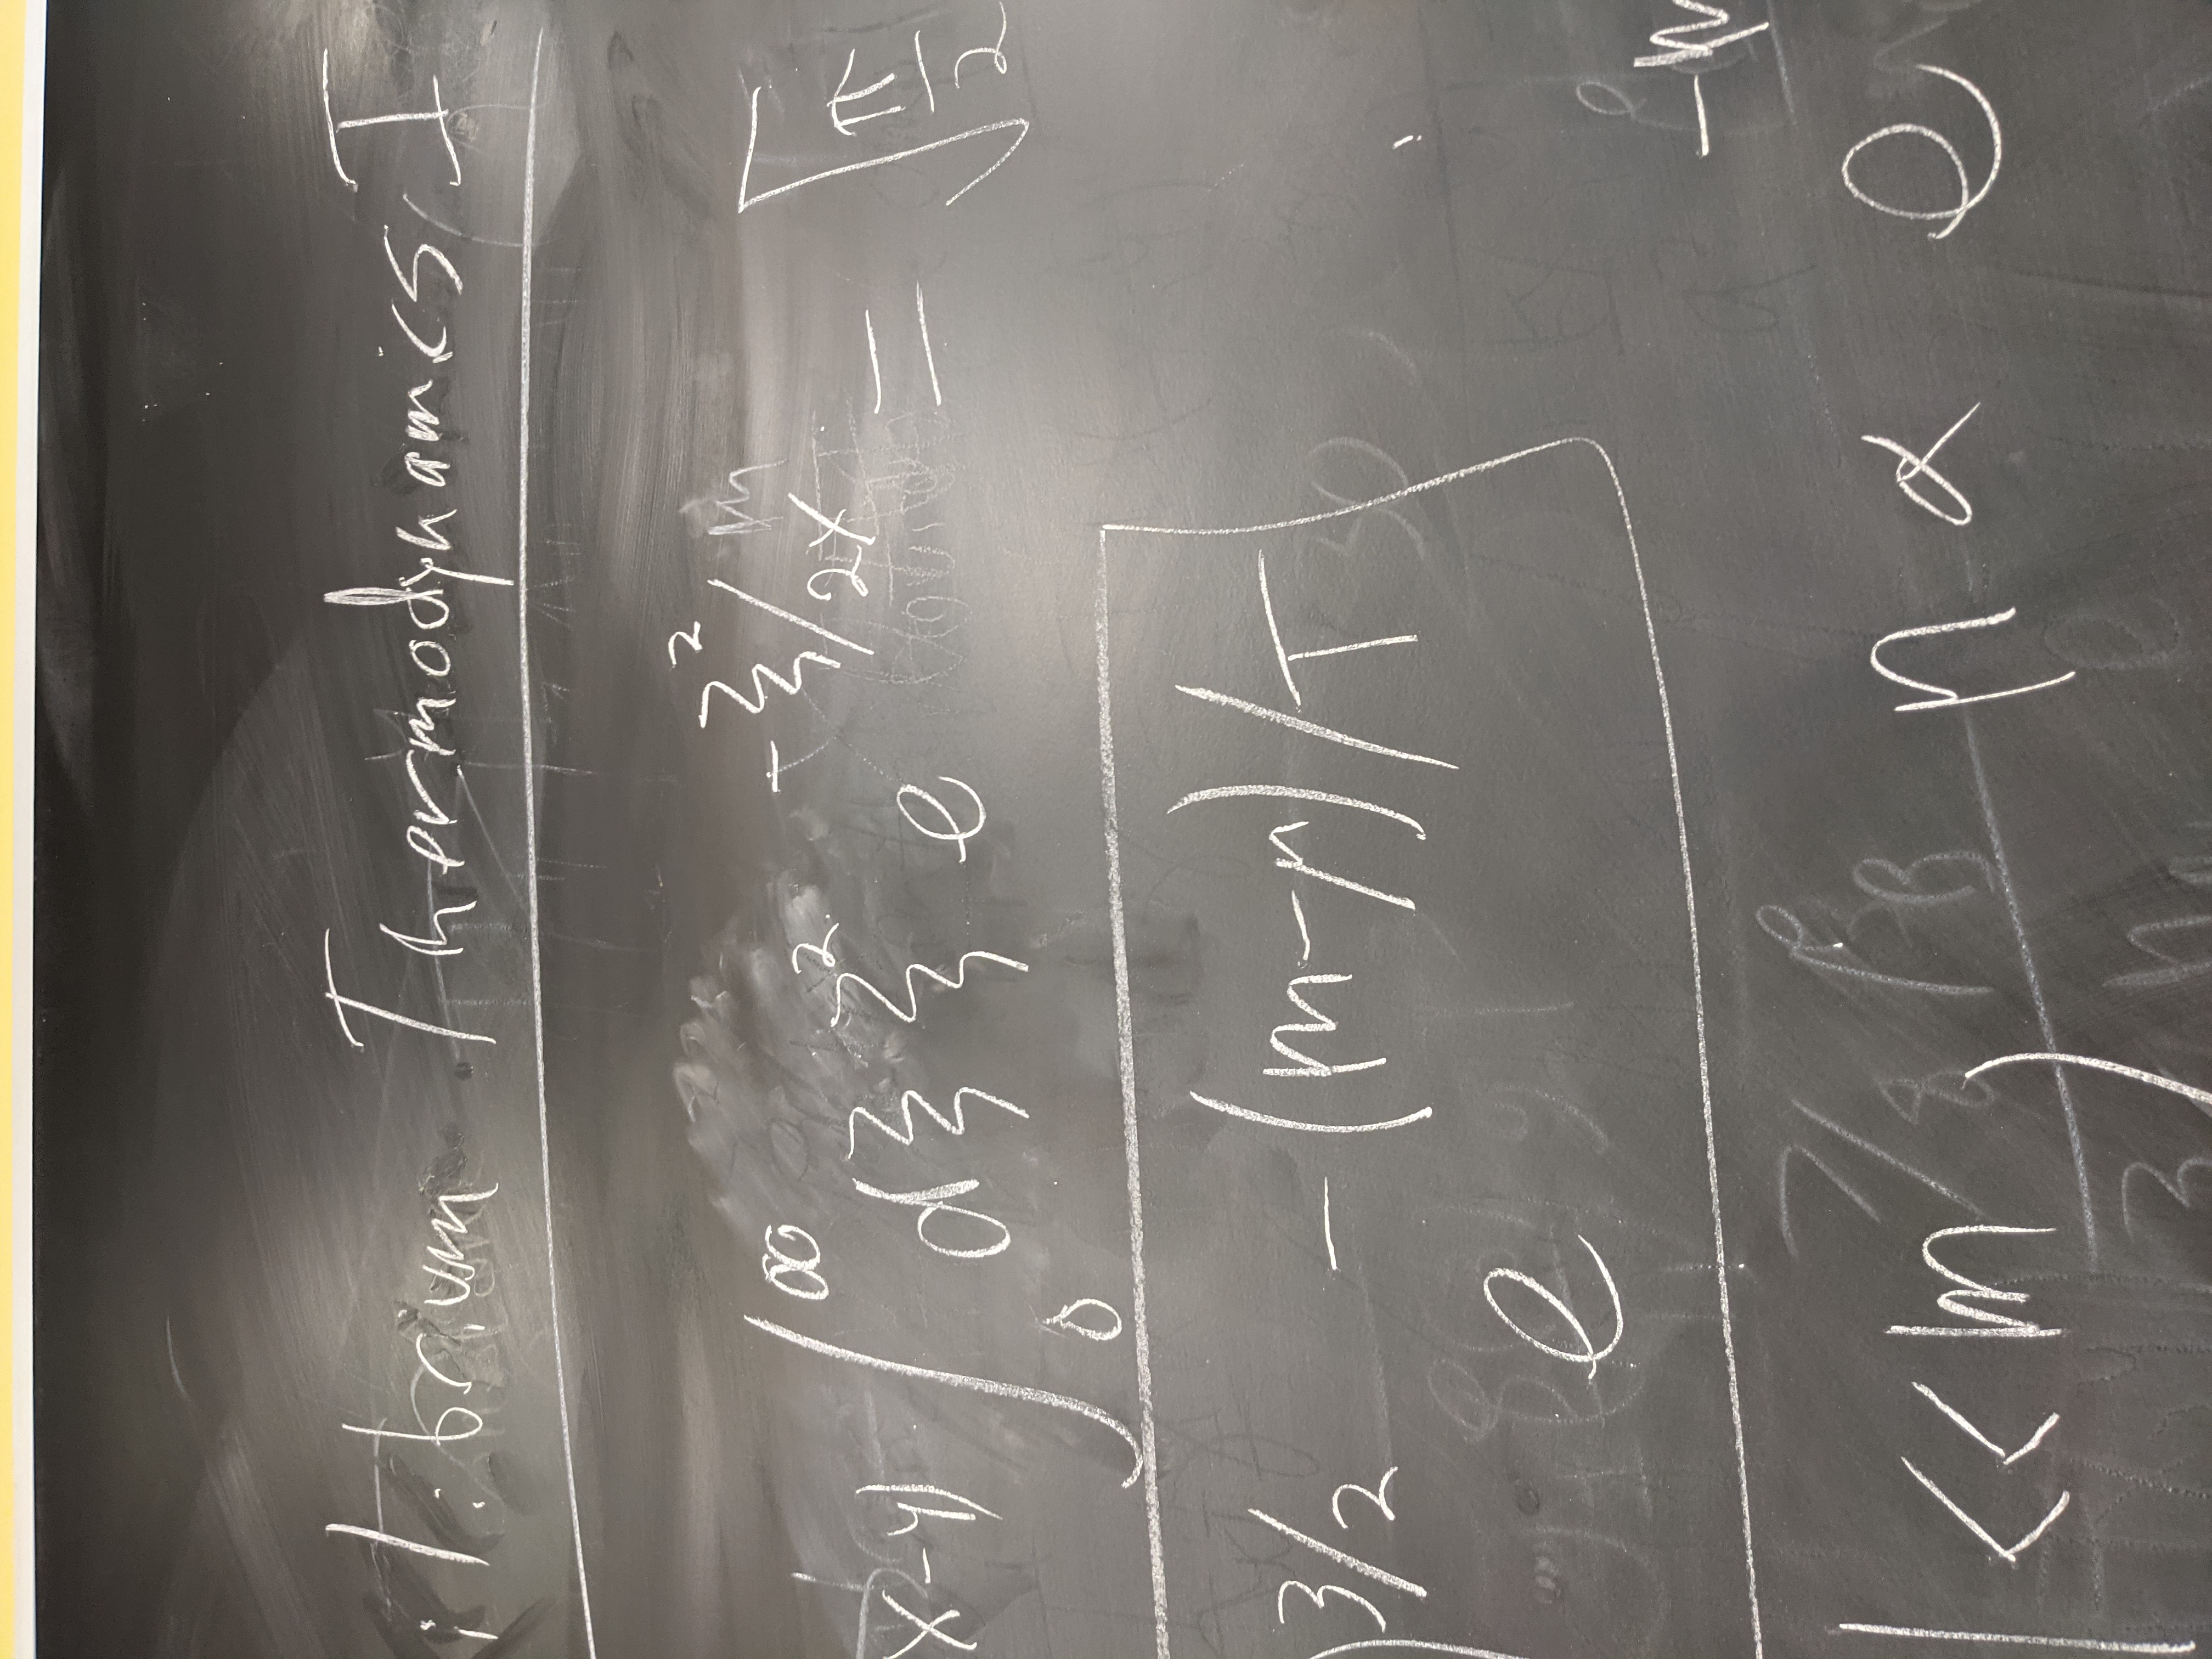 ilibrium Thermodynamics I
x-y) ∫₀^∞ dξ ξ² e^{-ξ²/2x} = √(π/2
)^{3/2} e^{-(m-μ)/T}
| << m, n ∝ e^{-m